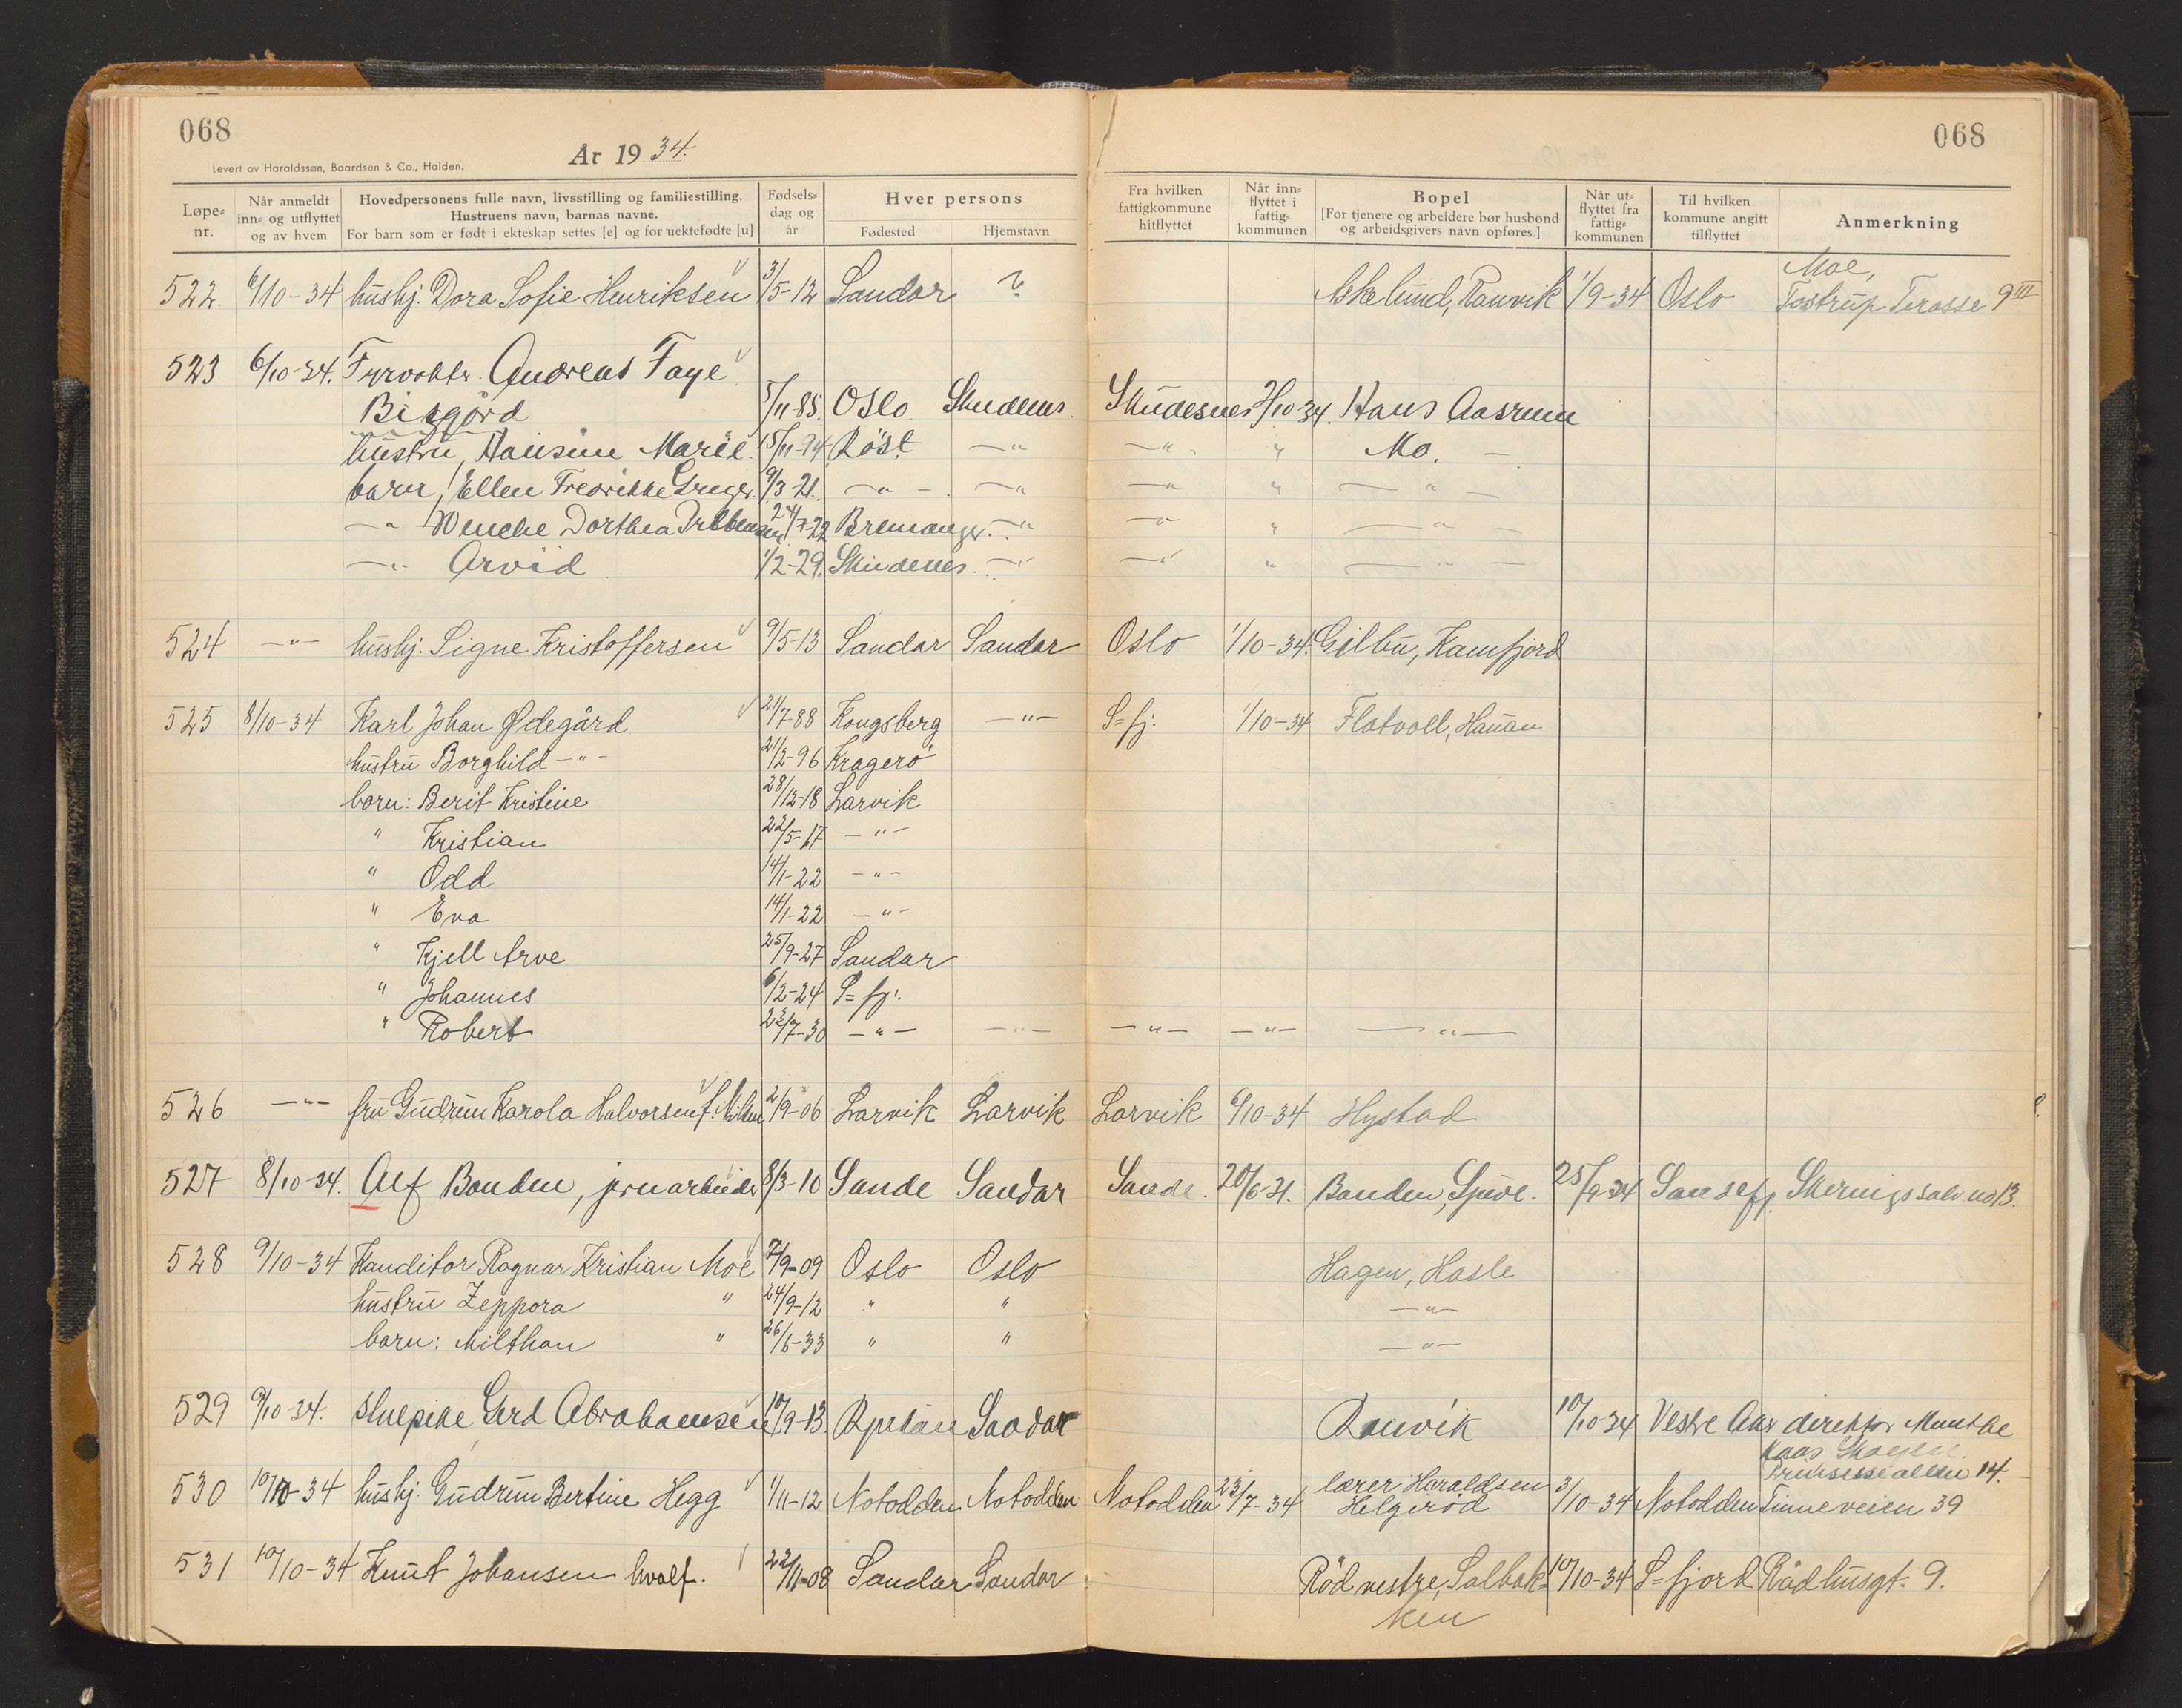 068
År 1934.
068
Levert av Haraldssøn, Baardsen & Co., Halden.
Løpe-nr. Når anmeldt inn- og utflyttet og av hvem Hovedpersonens fulle navn, livsstilling og familiestilling. Hustruens navn, barnas navne. For barn som er født i ekteskap settes [e] og for uektefødte [u] Fødsels-dag og år Hver persons Fødested Hjemstavn Fra hvilken fattigkommune hitflyttet Når inn-flyttet i fattig-kommunen Bopel [For tjenere og arbeidere bør husbond og arbeidsgivers navn opføres.] Når ut-flyttet fra fattig-kommunen Til hvilken kommune angitt tilflyttet Anmerkning
Moe,
522. 6/10-34 hushj. Dora Sofie Henriksen 3/5-12 Sandar ? Askelund, Ranvik 1/9-34 Oslo Tostrup Terasse 9 III
523 6/10-34. Fyrvokter Andreas Faye
Bisgård 5/11-85. Oslo Skudenes Skudesnes 2/10-34. Hans Aasrum
hustru, Hansine Marie 15/11-94 Röst -"- -"- " Mo. -
barn, Ellen Fredrikke 9/3-21. -"- -"- -"- " -"-
-"- Wenche Dorthea 24/7-22 Bremanger -"- -"- " -"-
-"- Arvid 1/2-29. Skudenes -"- -"- " -"-
524 -"- hushj. Signe Kristoffersen 9/5-13 Sandar Sandar Oslo 1/10-34. Gilbu, Kamfjord
525 8/10-34 Karl Johan Ødegård 21/7-88 Kongsberg -"- S=fj. 1/10-34 Flatvoll, Hauan
hustru Borghild -"- 21/2-96 Kragerö
barn: Berit Kristine 28/12-18 Larvik
" Kristian 22/5-17 -"-
" Odd 14/1-22 -"-
" Eva 14/1-22 -"-
" Kjell Arve 25/9-27 Sandar
" Johannes 6/2-24 S=fj.
" Robert 23/7-30 -"- -"- -"- -"- -"-
526 -"- fru Gudrun Karola Halvorsen f. Nilsen 2/9-06 Larvik Larvik Larvik 6/10-34 Hystad
527 8/10-34. Alf Bauden, jernarbeider 8/3-10 Sande Sandar Sande. 20/6-31. Bauden, Gjuve. 25/9-34 Sandefj. Skerings salv. no 13.
528 9/10-34 Kanditor Ragnar Kristian Moe 7/9-09 Oslo Oslo Hagen, Hasle
hustru Zeppora " 24/9-12 " " -"-
barn: Milthon " 26/6-33 " " -"-
529 9/10-34. stuepike Gerd Abrahamsen 10/9-13. Rjukan Sandar Ranvik 10/10-34 Vestre Aker direktør Munthe
Kaas
Prinsessealleen 14.
530 10/10-34 hushj. Gudrun Bertine Hegg 1/11-12 Notodden Notodden Notodden 23/7-34 lærer Haraldsen
Helgeröd 3/10-34 Notodden Tinneveien 39
531 10/10-34 Knut Johansen hvalf. 22/11-08 Sandar Sandar Röd vestre, Solbak- 10/10-34 S=fjord Rådhusgt. 9.
ken